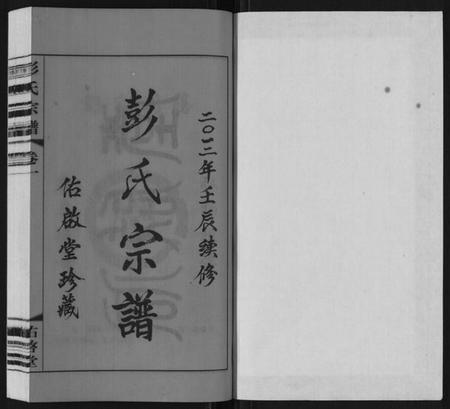 二〇一三年壬辰续修
彭氏宗譜
佑啟堂珍藏
彭氏宗譜
卷一
佑啓堂